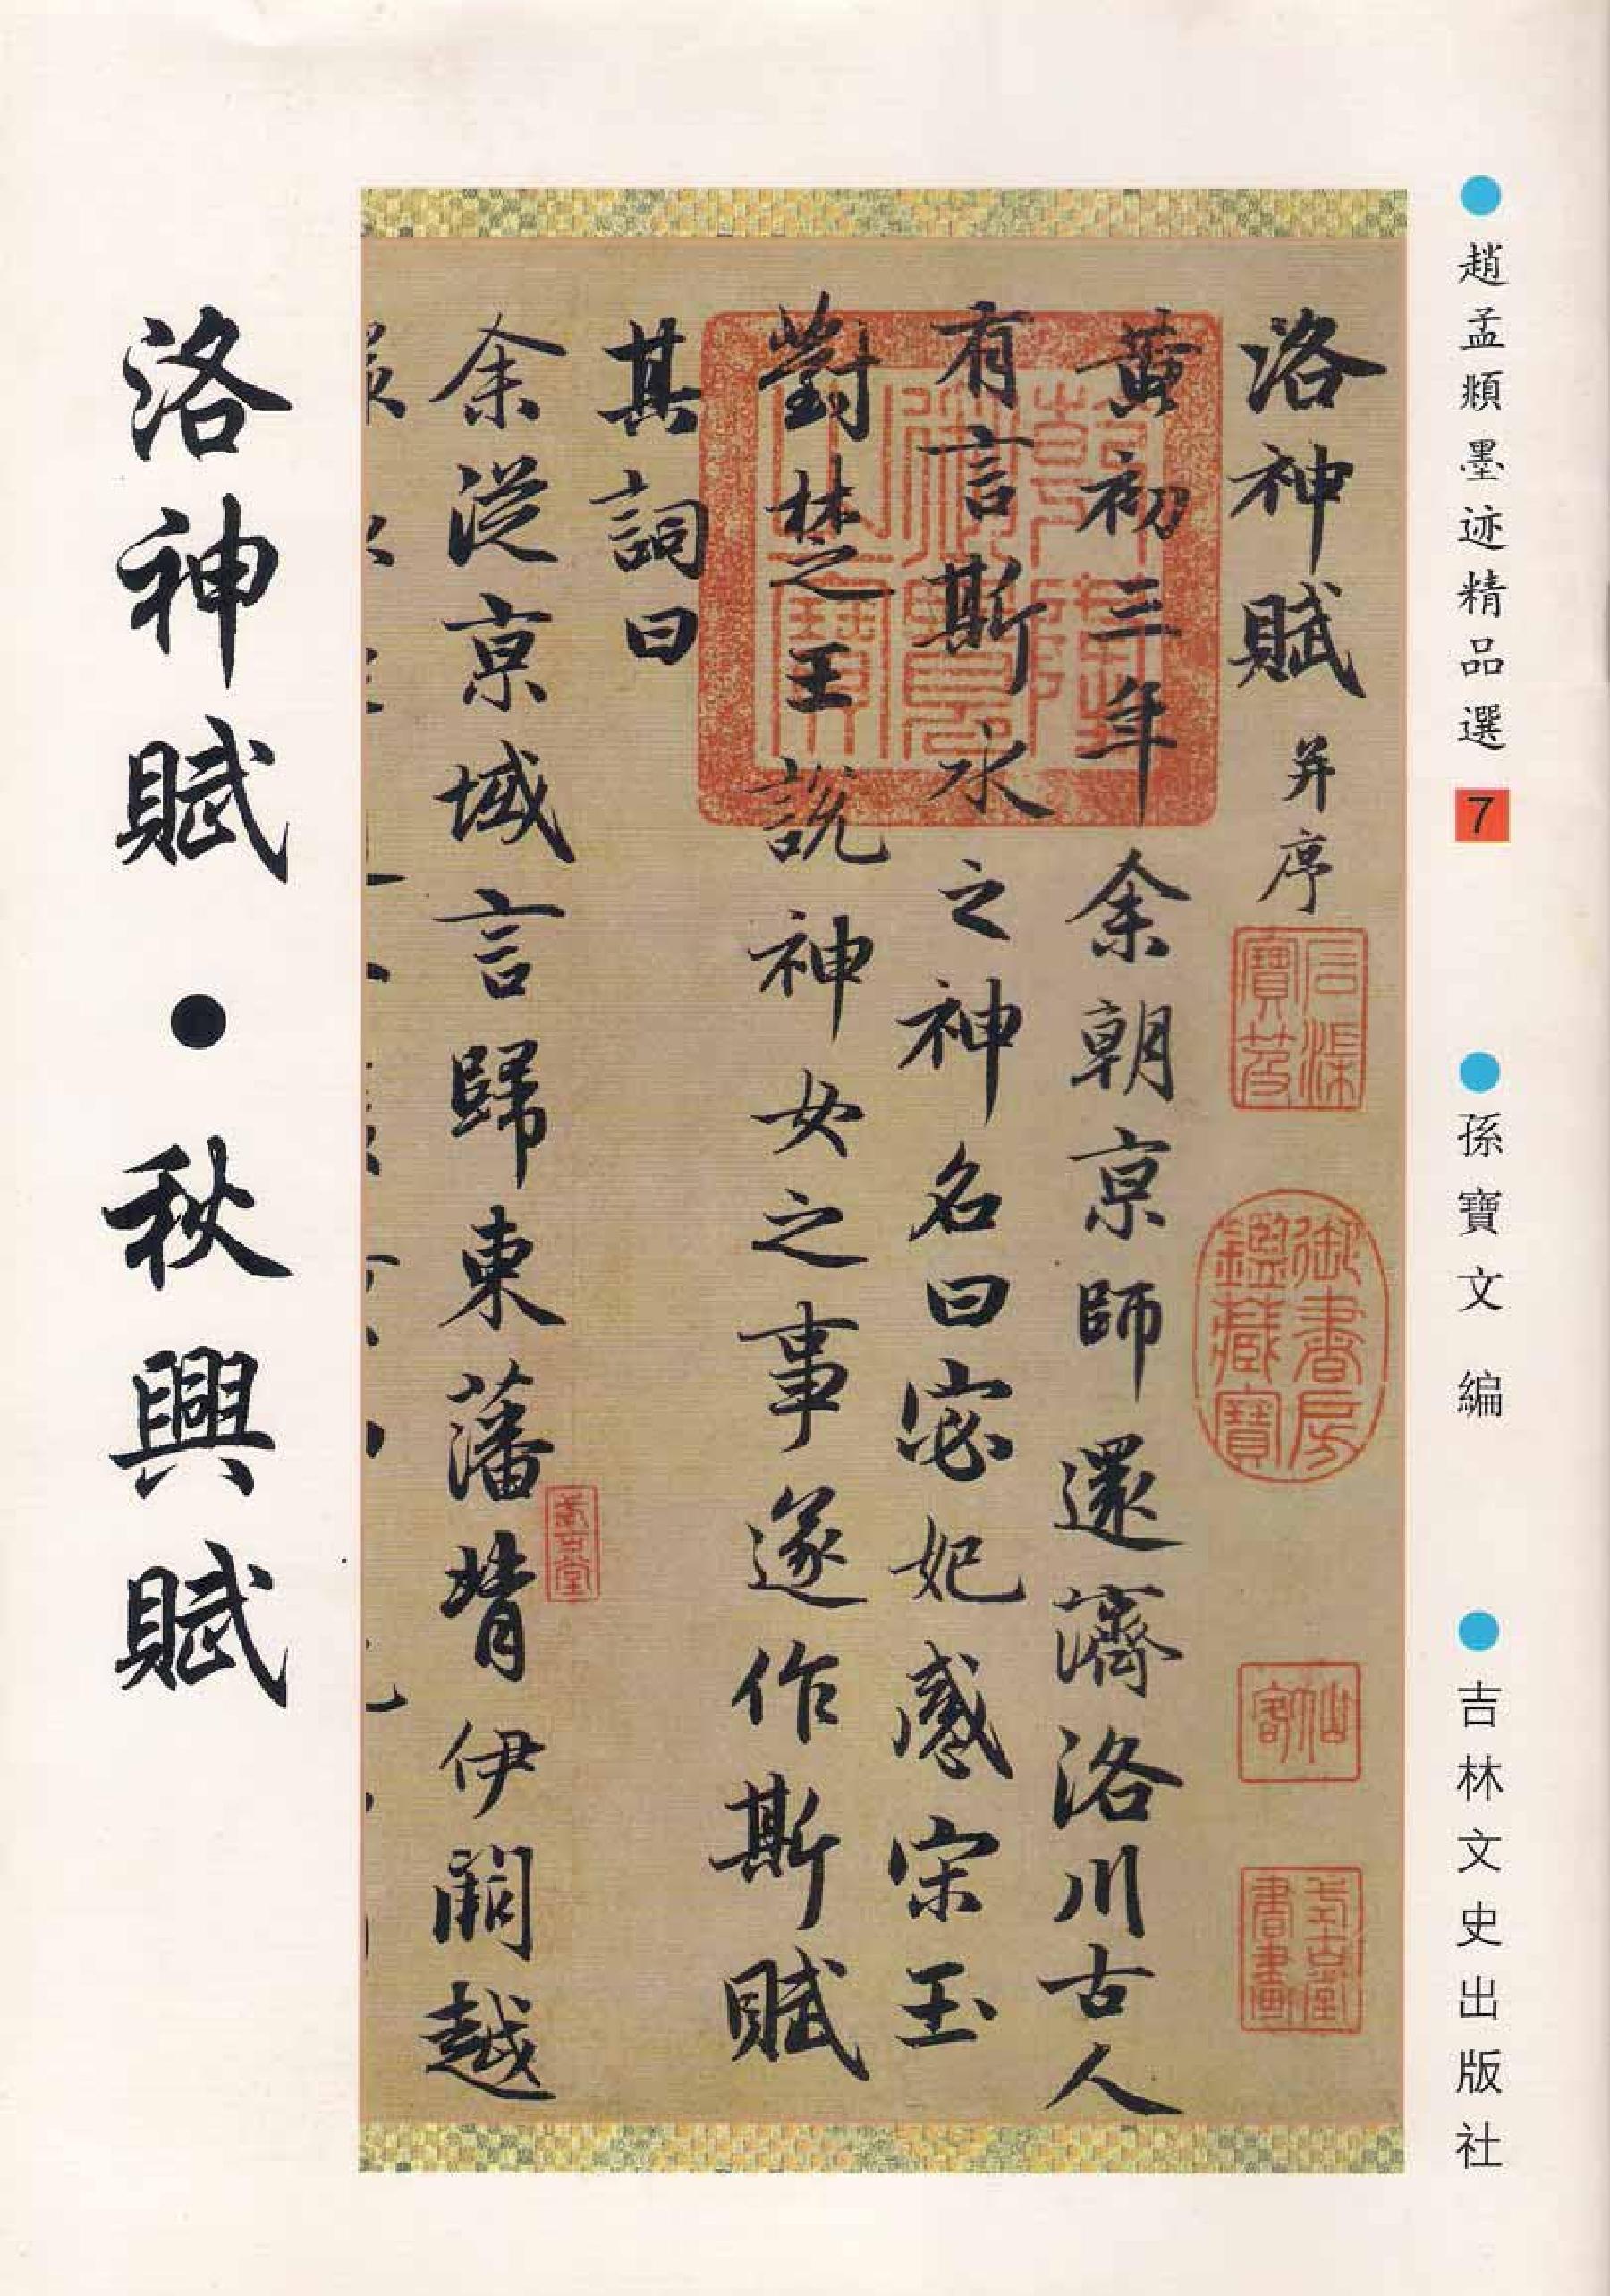 趙孟頫墨迹精品選
7
孫寶文 編
吉林文史出版社
洛神賦 并序
黄初三年余朝京師還濟洛川古人
有言斯水之神名曰宓妃感宋玉
對楚之王說神女之事遂作斯賦
其詞曰
余従京域言歸東藩背伊闕越
石渠寶笈
御書房鑑藏寶
洛神賦・秋興賦